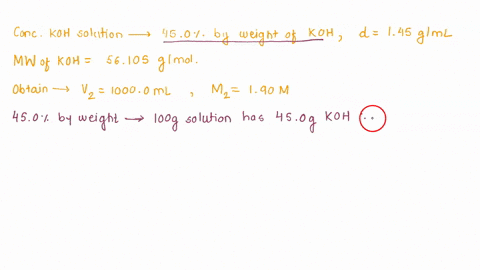 Conc. KOH solution → 45.0% by weight of KOH, d = 1.45 g/mL
MW of KOH = 56.105 g/mol.
Obtain → V₂ = 1000.0 mL , M₂ = 1.90 M
45.0% by weight → 100g solution has 45.0g KOH ..